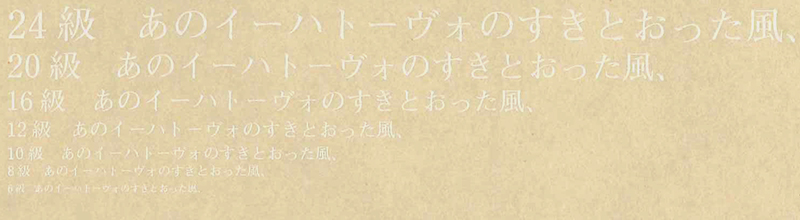 24 級　あのイーハトーヴォのすきとおった風、
20 級　あのイーハトーヴォのすきとおった風、
16 級　あのイーハトーヴォのすきとおった風、
12 級　あのイーハトーヴォのすきとおった風、
10 級　あのイーハトーヴォのすきとおった風、
8 級　あのイーハトーヴォのすきとおった風、
6 級　あのイーハトーヴォのすきとおった風、